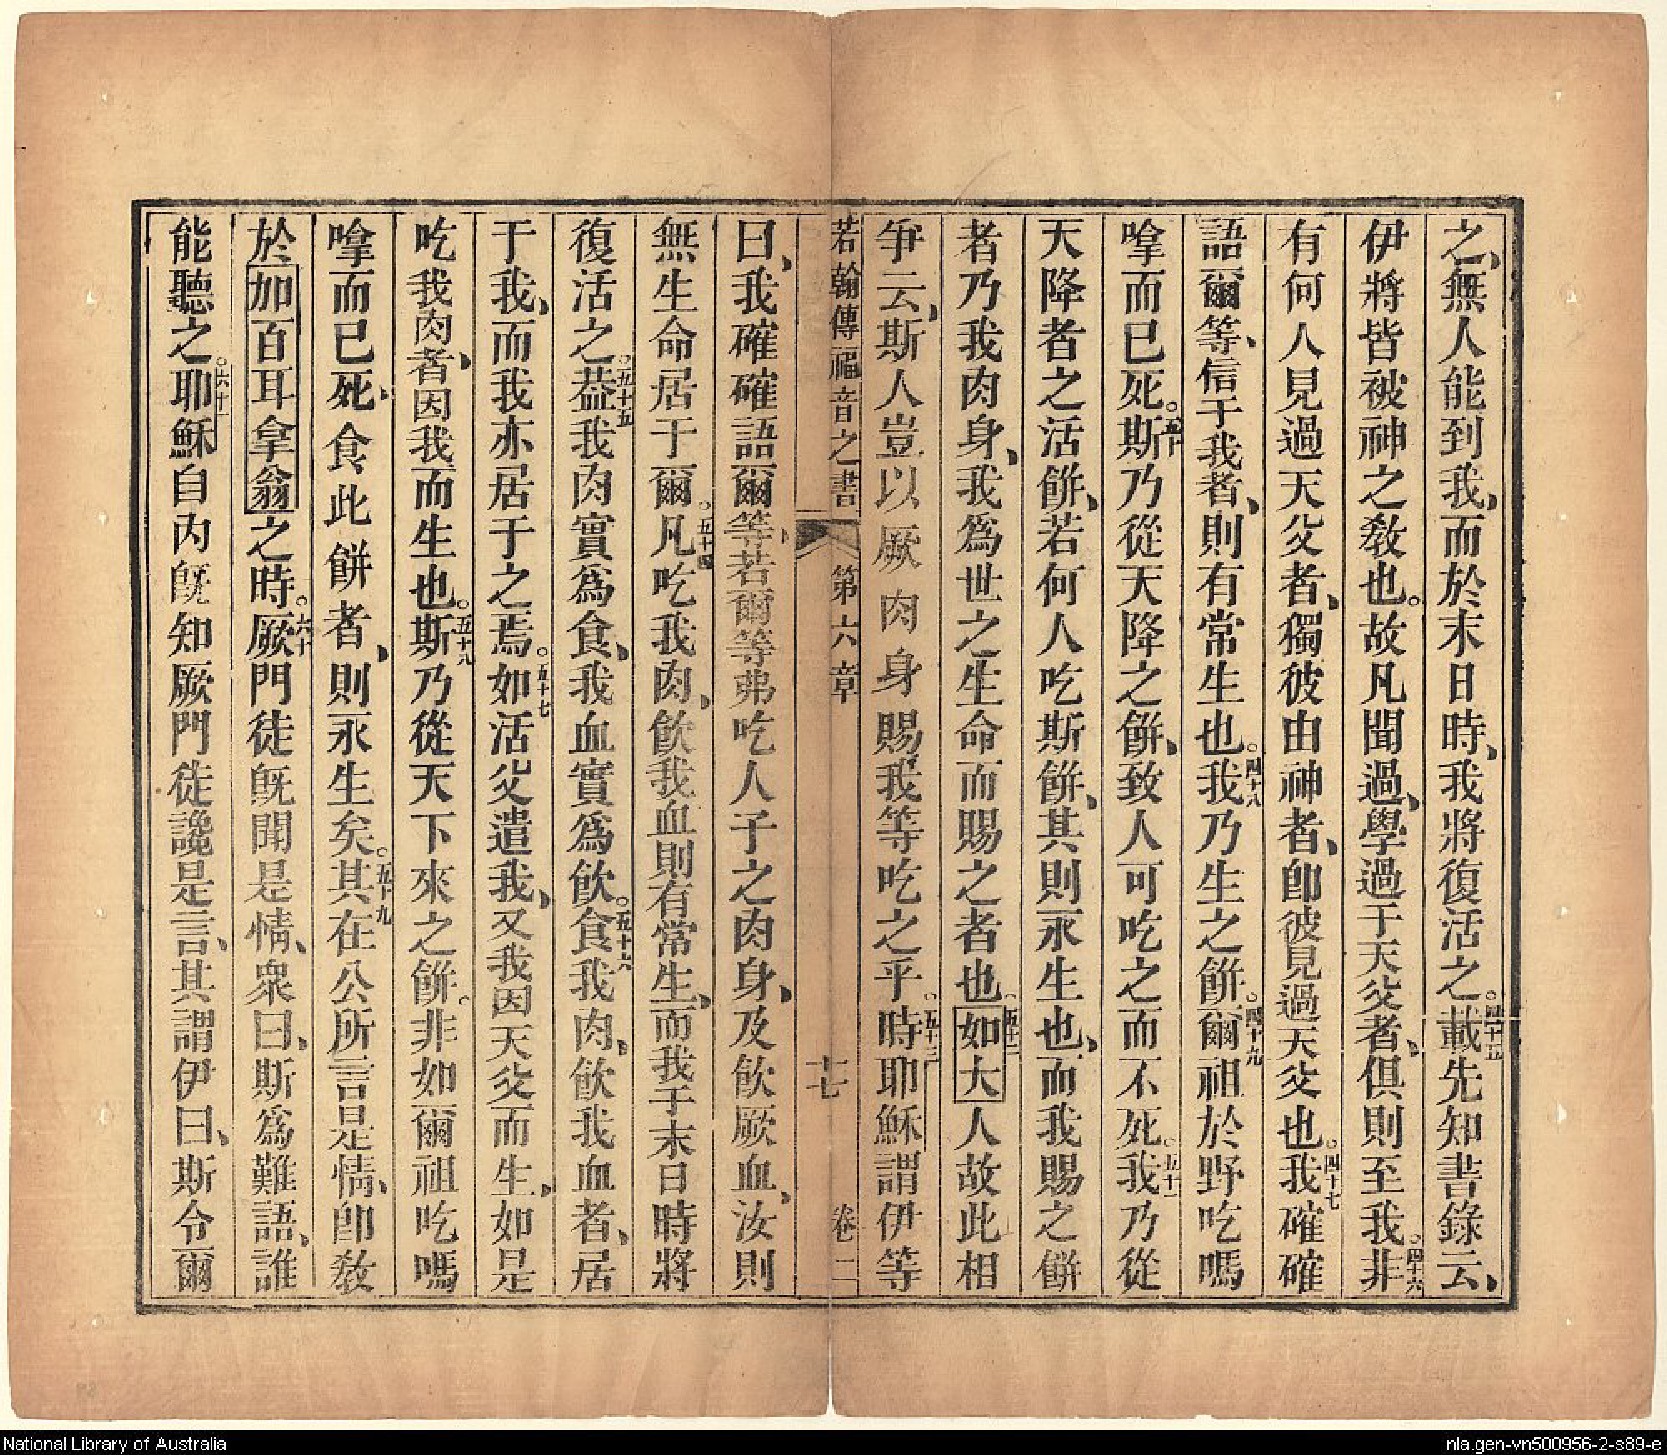 之、無人能到我、而於末日時、我將復活之。四十五載先知書錄云、
伊將皆被神之教也。故凡聞過、學過于天父者、俱則至我。四十六非
有何人見過天父者、獨彼由神者、即彼見過天父也。四十七我確確
語爾等、信于我者、則有常生也。四十八我乃生之餅。四十九爾祖於野吃嗎
嗱而已死。五十斯乃從天降之餅、致人可吃之而不死。五十一我乃從
天降者之活餅、若何人吃斯餅、其則永生也、而我賜之餅
者乃我肉身、我為世之生命而賜之者也。五十二如大人故此相
爭云、斯人豈以厥肉身賜我等吃之乎。五十三時耶穌謂伊等
若翰傳福音之書 第六章 十七 卷二
曰、我確確語爾等、若爾等弗吃人子之肉身、及飲厥血、汝則
無生命居于爾。五十四凡吃我肉、飲我血則有常生、而我于末日時將
復活之。五十五蓋我肉實為食、我血實為飲。五十六食我肉、飲我血者、居
于我、而我亦居于之焉。五十七如活父遣我、又我因天父而生、如是
吃我肉者、因我而生也。五十八斯乃從天下來之餅。非如爾祖吃嗎
嗱而已死、食此餅者、則永生矣。五十九其在公所言是情、即教
於加百耳拿翁之時。六十厥門徒既聞是情、衆曰、斯為難語、誰
能聽之。六十一耶穌自內既知厥門徒讒是言、其謂伊曰、斯令爾
National Library of Australia
nla.gen-vn500956-2-s89-e